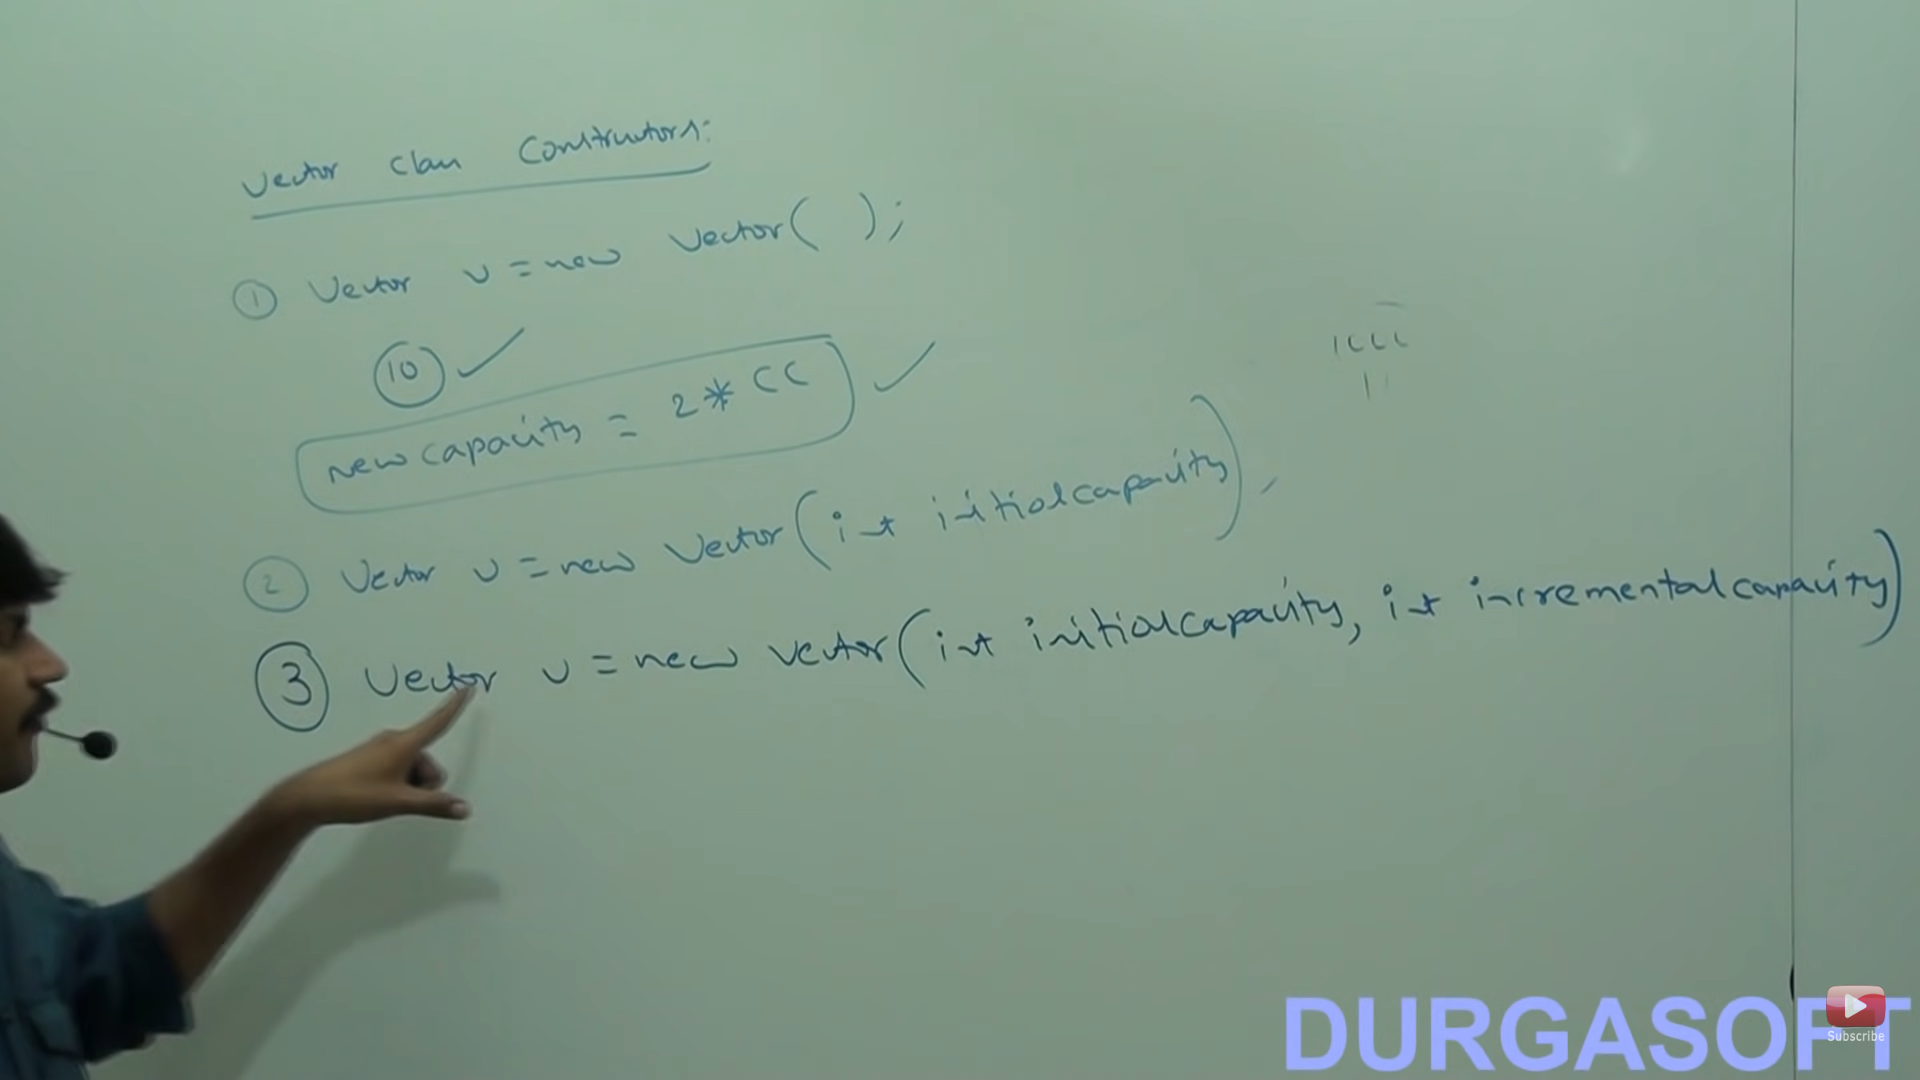 Vector class constructors:
① Vector v = new Vector( );
10 ✓
new capacity = 2 * CC ✓
② Vector v = new Vector(int initialcapacity);
③ Vector v = new Vector(int initialcapacity, int incrementalcapacity)
DURGASOFT
Subscribe